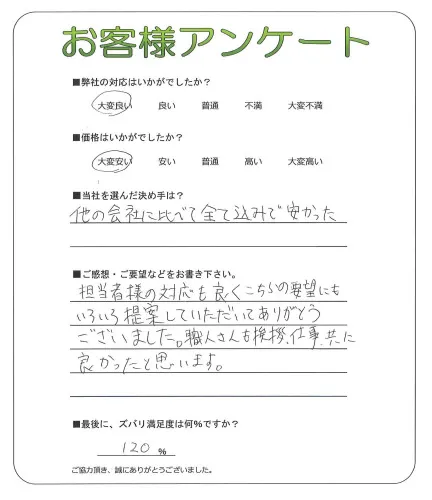 お客様アンケート
■弊社の対応はいかがでしたか？
大変良い 良い 普通 不満 大変不満
■価格はいかがでしたか？
大変安い 安い 普通 高い 大変高い
■当社を選んだ決め手は？
他の会社に比べて全て込みで安かった
■ご感想・ご要望などをお書き下さい。
担当者様の対応も良くこちらの要望にも
いろいろ提案していただいてありがとう
ございました。職人さんも挨拶、仕事、共に
良かったと思います。
■最後に、ズバリ満足度は何%ですか？
120 %
ご協力頂き、誠にありがとうございました。